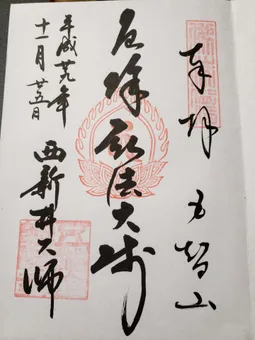 奉拝 五智山
厄除弘法大師
西新井大師
平成廿九年
十一月廿五日